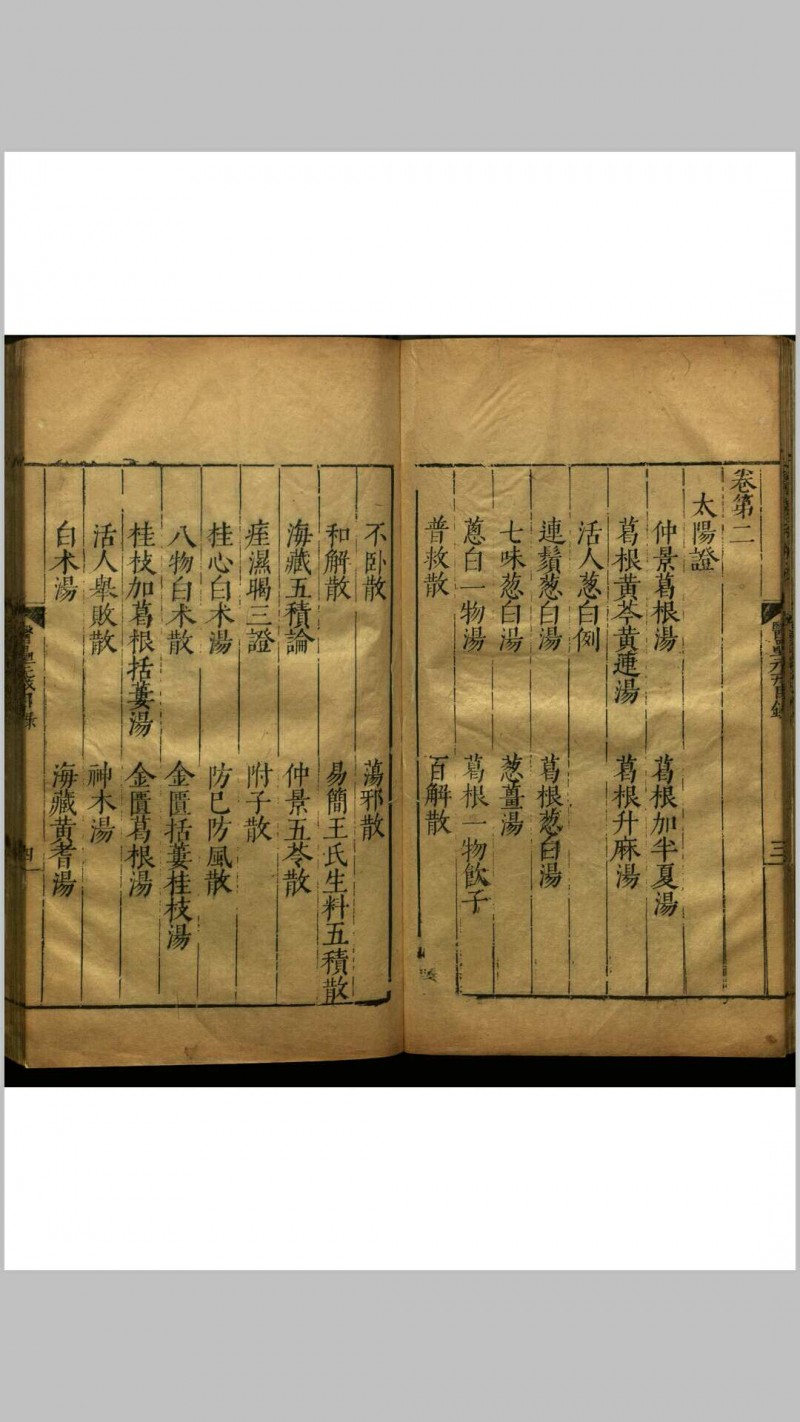 卷第二
太陽證
仲景葛根湯 葛根加半夏湯
葛根黃芩黃蓮湯 葛根升麻湯
活人葱白例
連鬚葱白湯 葛根葱白湯
七味葱白湯 葱薑湯
蔥白一物湯 葛根一物飲子
普救散 百解散
三
不卧散 蕩邪散
和解散 易簡王氏生料五積散
海藏五積論 仲景五苓散
痓濕暍三證 附子散
桂心白术湯 防已防風散
八物白术散 金匱括蔞桂枝湯
桂枝加葛根括蔞湯 金匱葛根湯
活人舉敗散 神木湯
白术湯 海藏黃耆湯
四